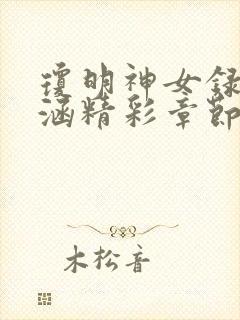 瓊明神女錄
涵精彩章節
木松音